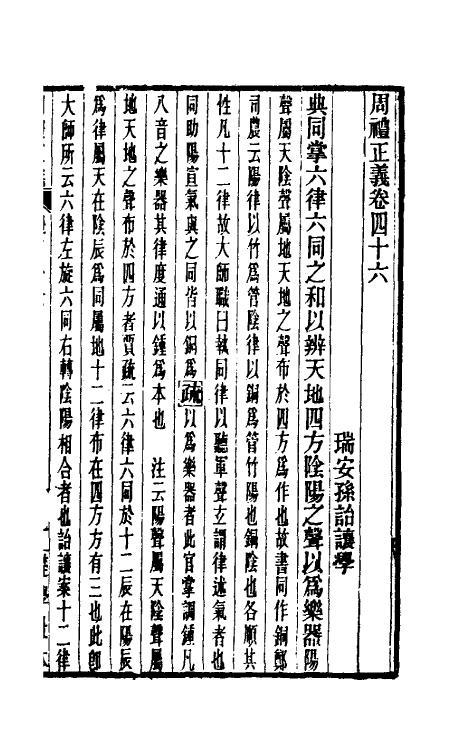 周禮正義卷四十六
瑞安孫詒讓學
典同掌六律六同之和以辨天地四方陰陽之聲以爲樂器陽
聲屬天陰聲屬地天地之聲布於四方爲作也故書同作銅鄭
司農云陽律以竹爲管陰律以銅爲管竹陽也銅陰也各順其
性凡十二律故大師職曰執同律以聽軍聲玄謂律述氣者也
同助陽宣氣與之同皆以銅爲疏以爲樂器者此官掌調鍾凡
八音之樂器其律度通以鍾爲本也　注云陽聲屬天陰聲屬
地天地之聲布於四方者賈疏云六律六同於十二辰在陽辰
爲律屬天在陰辰爲同屬地十二律布在四方方有三也此卽
大師所云六律左旋六同右轉陰陽相合者也詒讓案十二律